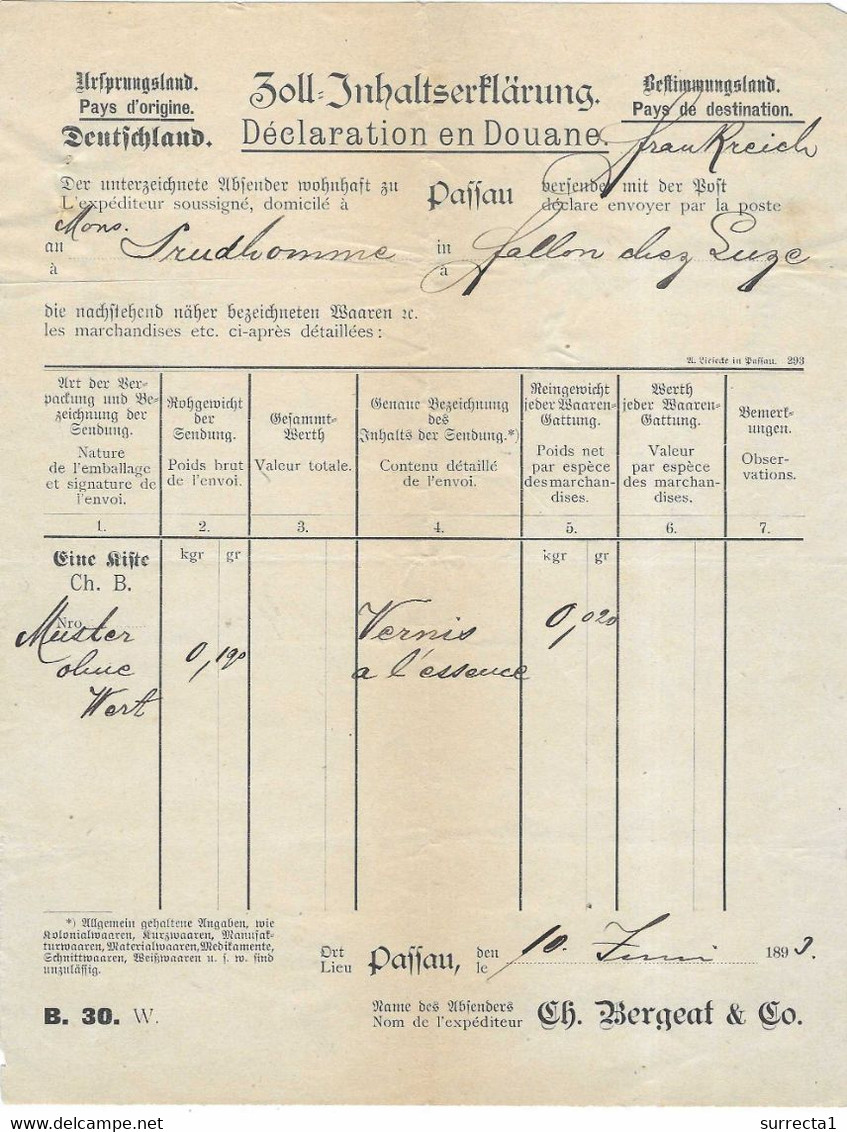 Ursprungsland.
Pays d'origine.
Deutschland.
Zoll-Inhaltserklärung.
Déclaration en Douane.
Bestimmungsland.
Pays de destination.
Frankreich
Der unterzeichnete Absender wohnhaft zu Passau versendet mit der Post
L'expéditeur soussigné, domicilé à déclare envoyer par la poste
Mons.
an Prudhomme in Fallon chez Luze
à à
die nachstehend näher bezeichneten Waaren ꝛc.
les marchandises etc. ci-après détaillées:
A. Liesecke in Passau. 293
Art der Ver-
packung und Be-
zeichnung der
Sendung.
Nature
de l'emballage
et signature de
l'envoi.
1.
Rohgewicht
der
Sendung.
Poids brut
de l'envoi.
2.
Gesammt-
Werth
Valeur totale.
3.
Genaue Bezeichnung
des
Inhalts der Sendung.*)
Contenu détaillé
de l'envoi.
4.
Reingewicht
jeder Waaren-
Gattung.
Poids net
par espèce
des marchan-
dises.
5.
Werth
jeder Waaren-
Gattung.
Valeur
par espèce
des marchan-
dises.
6.
Bemerk-
ungen.
Obser-
vations.
7.
Eine Kiste kgr gr kgr gr
Ch. B.
Nro
Muster 0,190 Vernis 0,020
ohne a l'essence
Wert
*) Allgemein gehaltene Angaben, wie
Kolonialwaaren, Kurzwaaren, Manufak-
turwaaren, Materialwaaren, Medikamente,
Schnittwaaren, Weißwaaren u. s. w. sind
unzulässig.
Ort Passau, den 10. Juni 1893.
Lieu le
B. 30. W.
Name des Absenders
Nom de l'expéditeur Ch. Bergeat & Co.
surrecta1